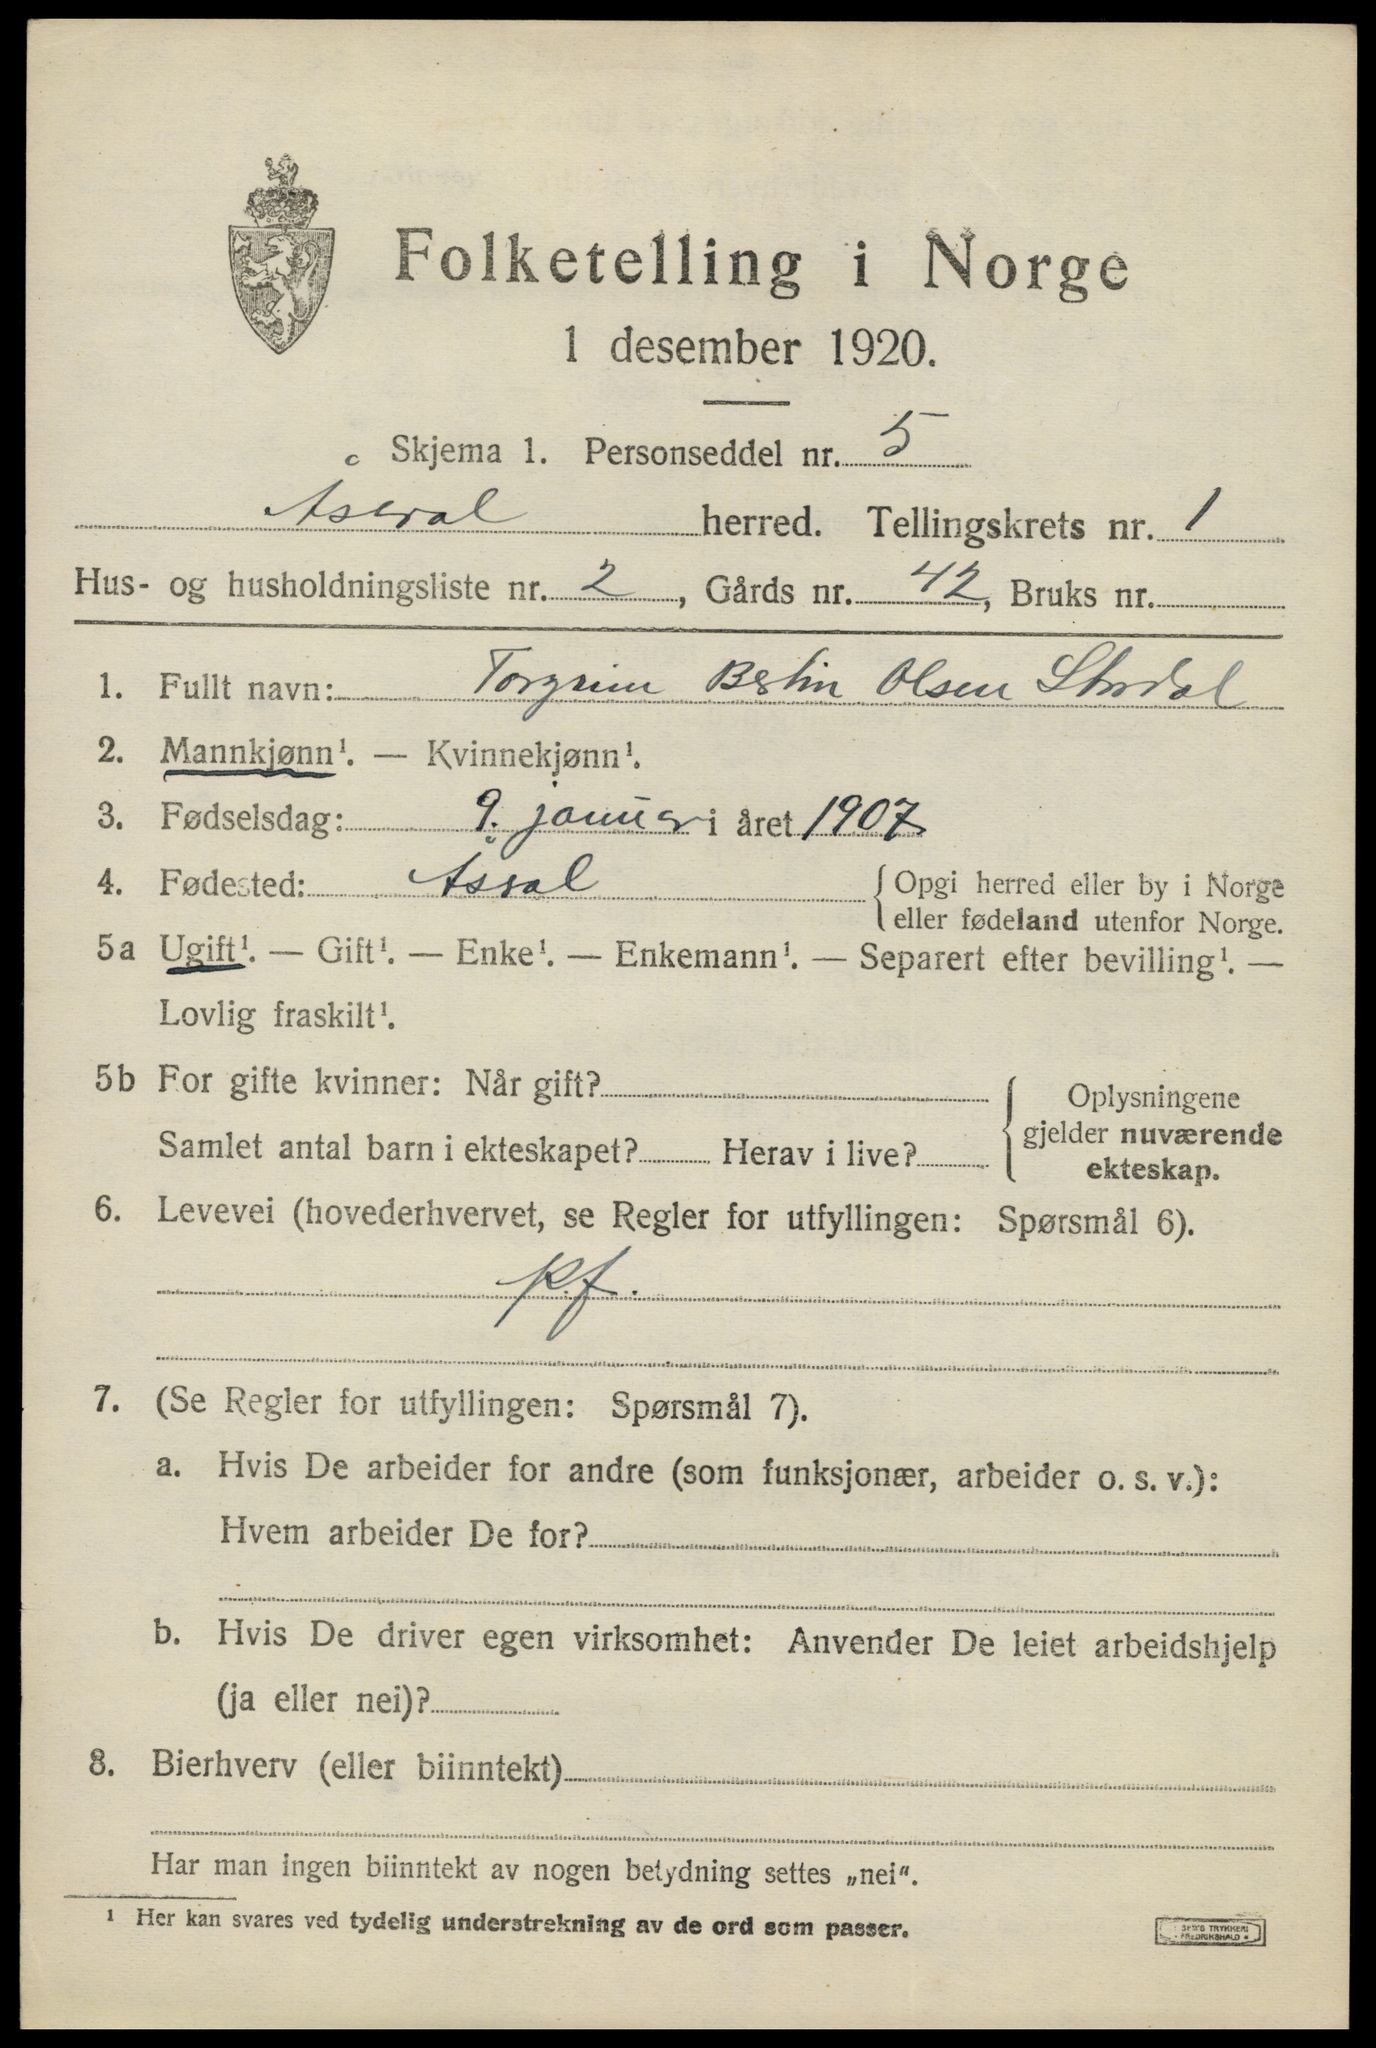 Folketelling i Norge
1 desember 1920.
Skjema 1. Personseddel nr. 5
Åseral herred. Tellingskrets nr. 1
Hus- og husholdningsliste nr. 2, Gårds nr. 42, Bruks nr.
1. Fullt navn: Torgrim Olsen
2. Mannkjønn¹. — Kvinnekjønn¹.
3. Fødselsdag: 9. januar i året 1907
4. Fødested: Åsral {Opgi herred eller by i Norge
eller fødeland utenfor Norge.
5a Ugift¹. — Gift¹. — Enke¹. — Enkemann¹. — Separert efter bevilling¹. —
Lovlig fraskilt¹.
5b For gifte kvinner: Når gift? Oplysningene
Samlet antal barn i ekteskapet? Herav i live? gjelder nuværende
ekteskap.
6. Levevei (hovederhvervet, se Regler for utfyllingen: Spørsmål 6).
p.f.
7. (Se Regler for utfyllingen: Spørsmål 7).
a. Hvis De arbeider for andre (som funksjonær, arbeider o. s. v.):
Hvem arbeider De for?
b. Hvis De driver egen virksomhet: Anvender De leiet arbeidshjelp
(ja eller nei)?
8. Bierhverv (eller biinntekt)
Har man ingen biinntekt av nogen betydning settes „nei“.
¹ Her kan svares ved tydelig understrekning av de ord som passer.
TRYKKERI
FREDRIKSHALD